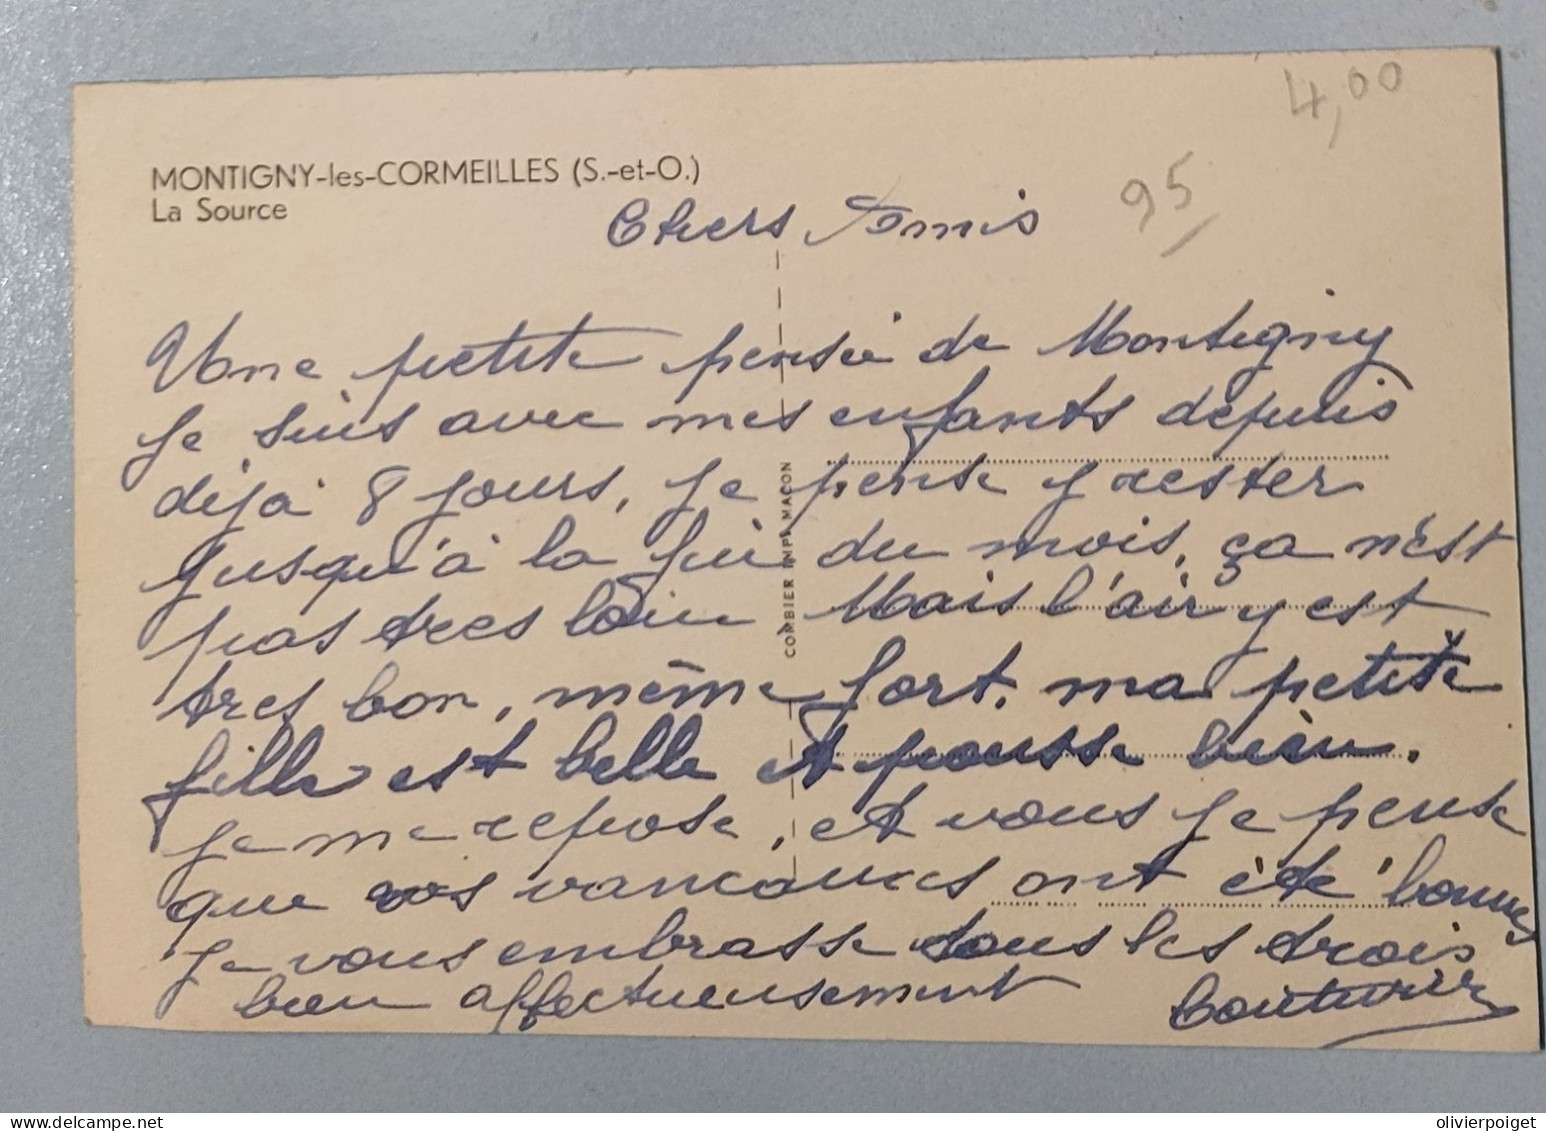 4,00
95
MONTIGNY-les-CORMEILLES (S.-et-O.)
La Source
Chers Amis
Une petite pensée de Montigny
Je suis avec mes enfants depuis
déjà 8 jours, je pense y rester
jusqu'à la fin du mois, ça n'est
pas tres loin Mais l'air y est
tres bon, même fort, ma petite
fille est belle et pousse bien.
je me repose, et vous je pense
que vos vancances ont été bonnes
Je vous embrasse tous les trois
bien affectueusement
COMBIER IMP. MACON
olivierpoiget